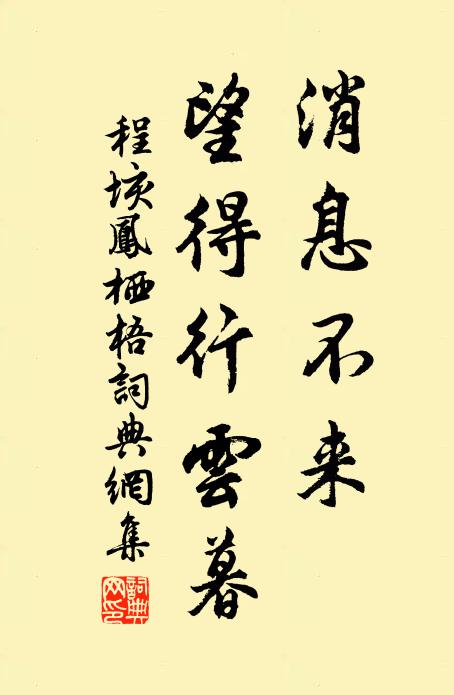 消息不来
望得行雲暮
程垓鳳栖梧詞典網集
詞典網印